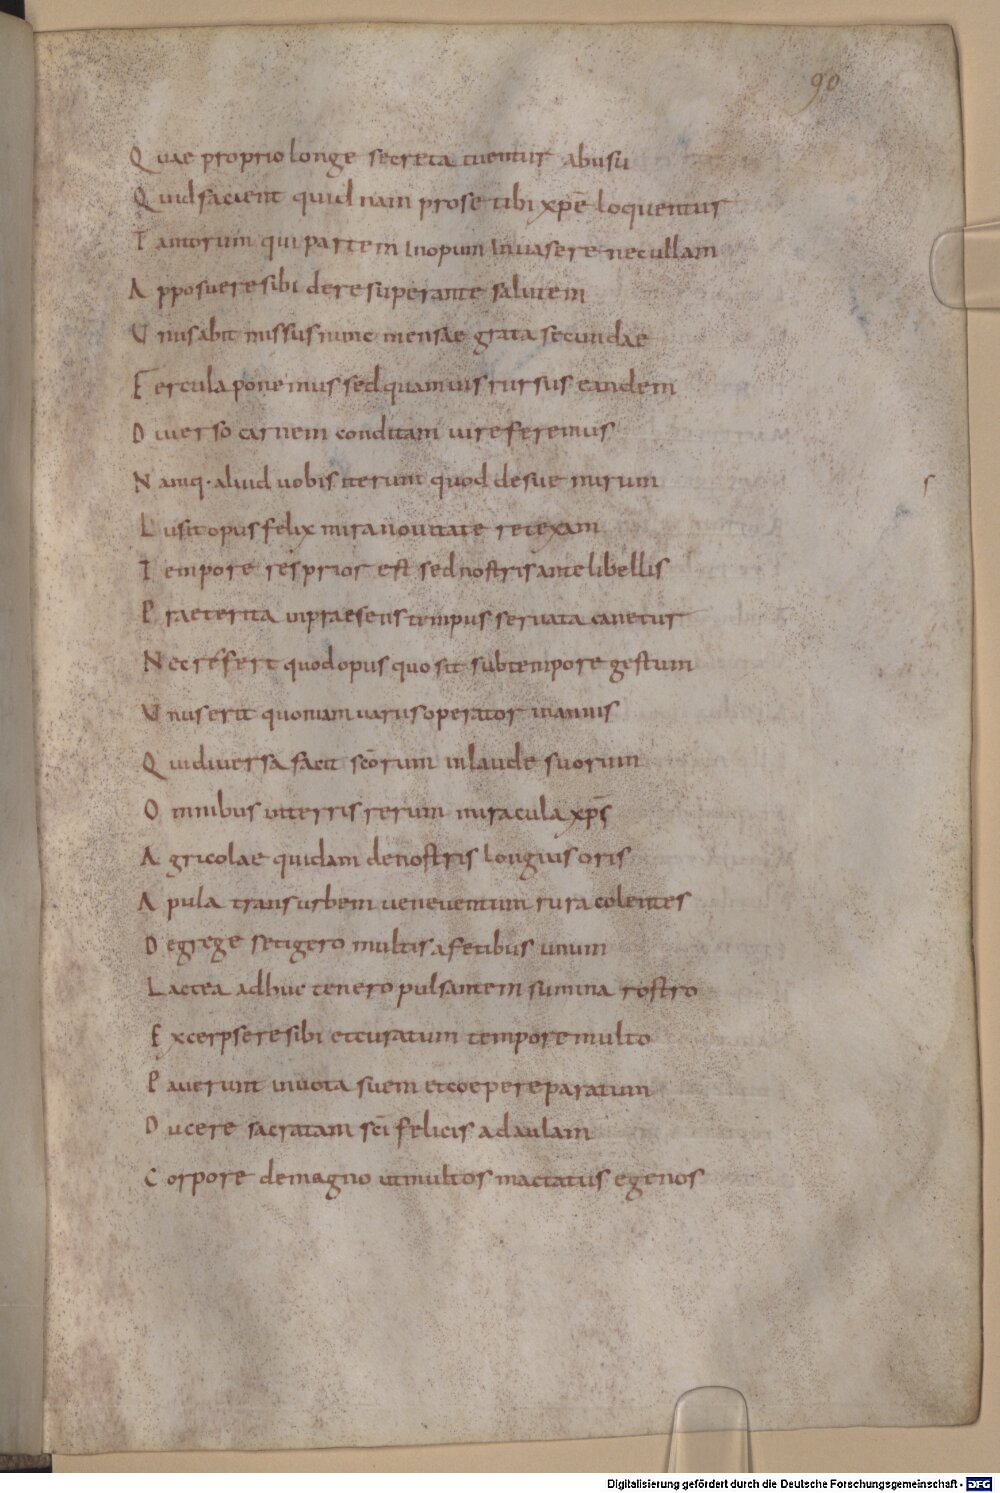 90
Quae proprio longe secreta tuentur abusu
Quid facient quid nam pro se tibi xpē loquentur
Tantorum qui partem Inopum Inuasere nec ullam
Apposuere sibi de re superante salutem
Unus abit missus nunc mensae grata secundae
Fercula ponemus sed quamuis rursus eandem
Diuerso carnem conditam uireferemus
Namq· aliud uobis iterum quod de sue mirum
Lusit opus felix mira nouitate retexam
Tempore res prior est sed nostris ante libellis
Praeterita inpraesens tempus seruata canetur
Nec refert quod opus quo sit sub tempore gestum
Unus erit quoniam uarius operator in annis
Qui diuersa facit scōrum in laude suorum
Omnibus interris rerum miracula xp̄s
Agricolae quidam de nostris longius oris
Apula trans urbem ueneuentum rura colentes
De grege setigero multis a fetibus unum
Lactea adhuc tenero pulsantem summa rostro
Excerpsere sibi et curatum tempore multo
Pauerunt in uota suem et coepere paratum
Ducere sacratam scī felicis ad aulam
Corpore de magno ut multos mactatus egenos
Digitalisierung gefördert durch die Deutsche Forschungsgemeinschaft - DFG